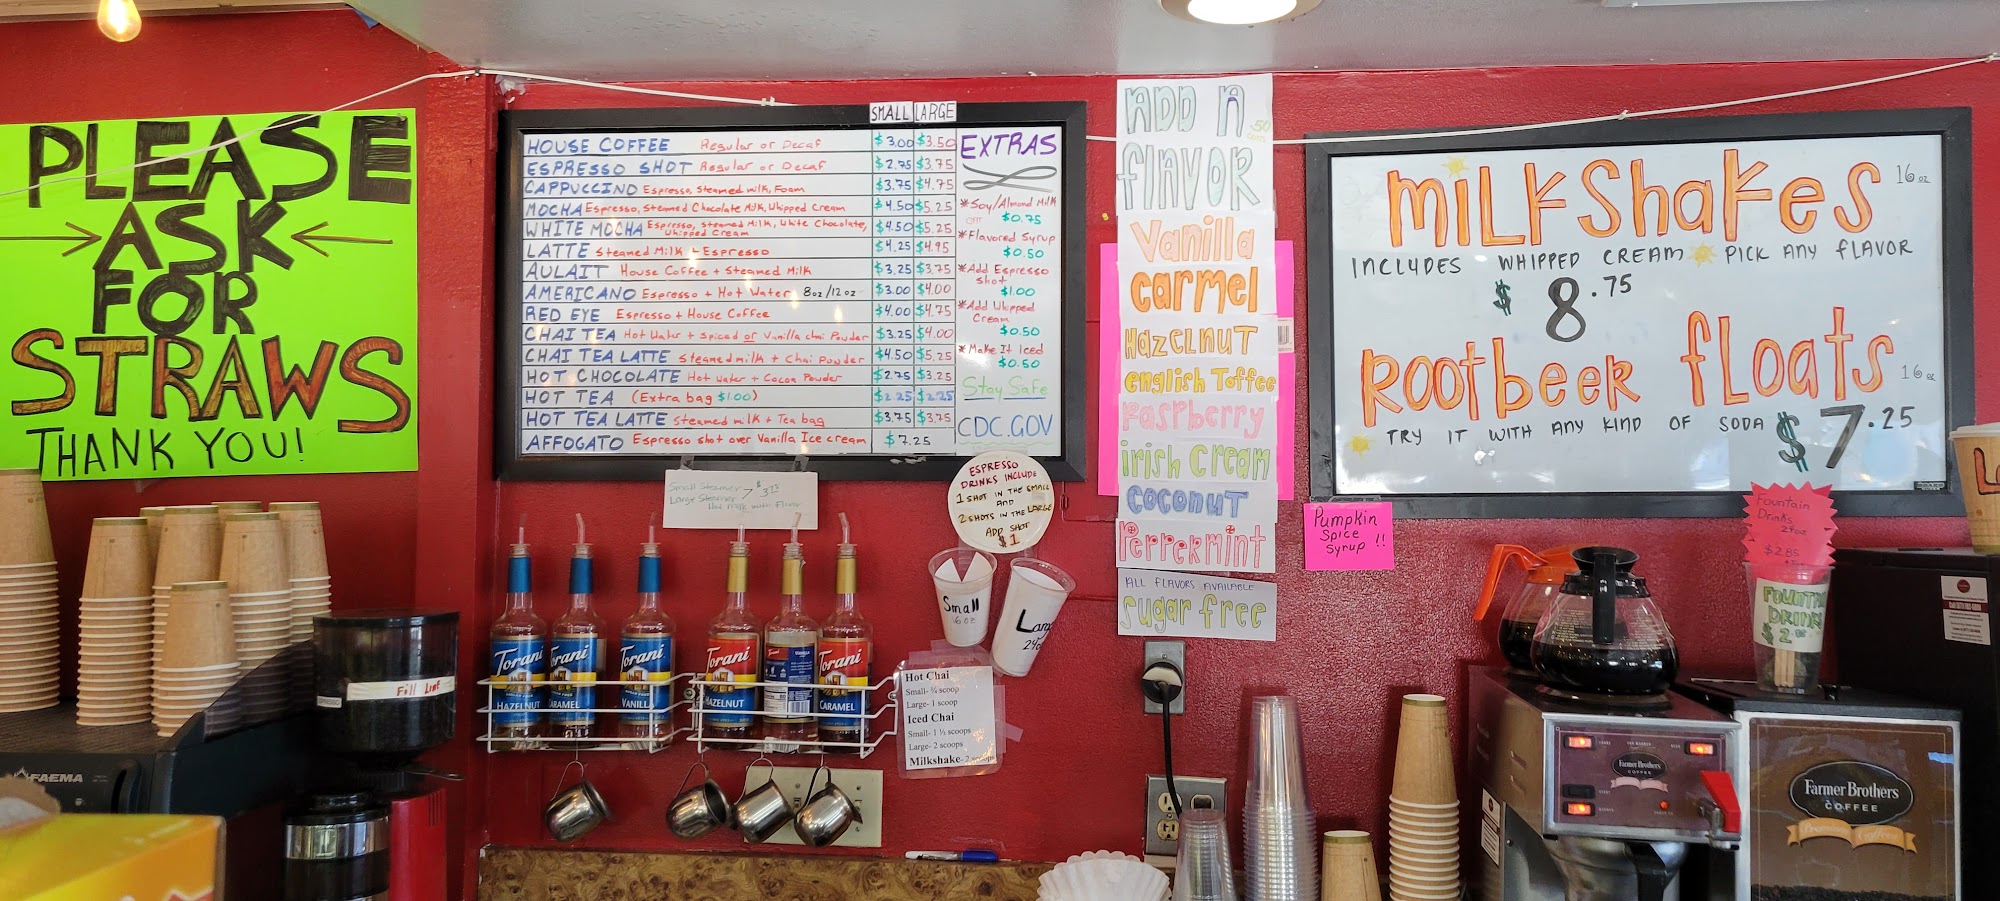 PLEASE
ASK
FOR
STRAWS
THANK YOU!
SMALL LARGE
HOUSE COFFEE Regular or Decaf $3.00 $3.50
ESPRESSO SHOT Regular or Decaf $2.75 $3.75
CAPPUCCINO Espresso, Steamed milk, Foam $3.75 $4.75
MOCHA Espresso, Steamed Chocolate Milk, Whipped Cream $4.50 $5.25
WHITE MOCHA Espresso, Steamed Milk, White Chocolate, Whipped Cream $4.50 $5.25
LATTE Steamed Milk + Espresso $4.25 $4.95
AULAIT House Coffee + Steamed Milk $3.25 $3.75
AMERICANO Espresso + Hot Water 8oz/12oz $3.00 $4.00
RED EYE Espresso + House Coffee $4.00 $4.75
CHAI TEA Hot Water + Spiced or Vanilla chai Powder $3.25 $4.00
CHAI TEA LATTE Steamed milk + Chai Powder $4.50 $5.25
HOT CHOCOLATE Hot Water + Cocoa Powder $2.75 $3.25
HOT TEA (Extra bag $1.00) $2.25 $2.25
HOT TEA LATTE Steamed milk + Tea bag $3.75 $3.75
AFFOGATO Espresso shot over Vanilla Ice cream $7.25
EXTRAS
*Soy/Almond Milk
$0.75
*Flavored Syrup
$0.50
*Add Espresso
Shot
$1.00
*Add Whipped
Cream
$0.50
*Make It Iced
$0.50
Stay Safe
CDC.GOV
Small Steamer
Large Steamer
Hot milk with Flavor
ESPRESSO
DRINKS INCLUDE
1 SHOT IN THE SMALL
AND
2 SHOTS IN THE LARGE
ADD SHOT
$1
Small
16 oz
Large
ADD A
.50
flavor
Vanilla
carmel
Hazelnut
english Toffee
Raspberry
irish cream
coconut
Peppermint
ALL FLAVORS AVAILABLE
sugar free
MILKSHAKES 16oz
INCLUDES WHIPPED CREAM PICK ANY FLAVOR
$8.75
ROOTBEER FLOATS 16oz
TRY IT WITH ANY KIND OF SODA $7.25
Pumpkin
Spice
Syrup !!
Fountain
Drinks
24oz
$2.85
FOUNTAIN
DRINKS
$2
Torani
HAZELNUT
Torani
CARAMEL
Torani
VANILLA
Torani
HAZELNUT
Torani
CARAMEL
Hot Chai
Small- ¾ scoop
Large- 1 scoop
Iced Chai
Small- 1 ½ scoops
Large- 2 scoops
Milkshake- 2 scoops
FAEMA
Fill Line
Farmer Brothers
COFFEE
Farmer Brothers
COFFEE